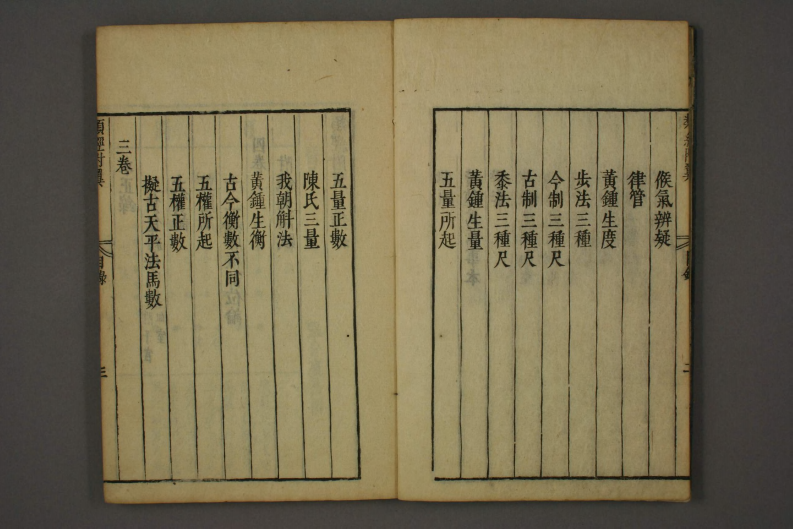 候氣辨疑
律管
黃鍾生度
步法三種
今制三種尺
古制三種尺
黍法三種尺
黃鍾生量
五量所起
五量正數
陳氏三量
我朝斛法
黃鍾生衡
古今衡數不同
五權所起
五權正數
擬古天平法馬數
三卷
類經附翼
目錄
三